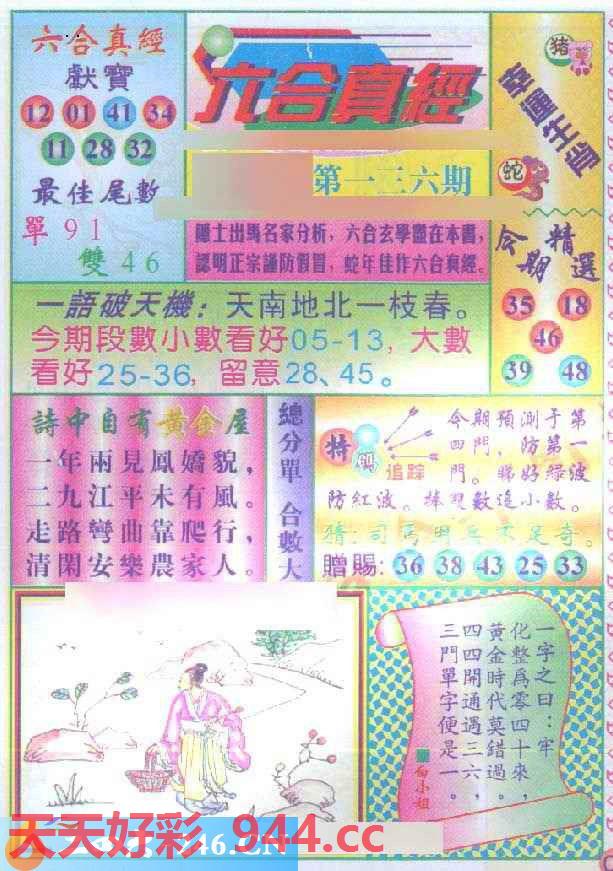 六合真經
獻寶
12 01 41 34
11 28 32
最佳尾數
單 91
雙 46
六合真經
第一三六期
隱士出馬名家分析，六合玄學盡在本書，
認明正宗謹防假冒，蛇年佳作六合真經。
猪
蛇
今期精選
35 18
46
39 48
一語破天機：天南地北一枝春。
今期段數小數看好05-13，大數
看好25-36，留意28、45。
詩中自有黃金屋
一年兩見鳳嬌貌，
二九江平未有風。
走路彎曲靠爬行，
清閑安樂農家人。
總分單 合數大
特碼
追踪
今期預測于第
四門，防第一
門。睇好綠波
防紅波。捧雙數追小數。
猜：司馬明兵不足奇。
贈賜：36 38 43 25 33
一字之曰：牢
化整為零四十來，
黃金時代莫錯過。
四四開通遇三六，
三門單字便是一。
白小姐
天天好彩.944.cc
246.CN